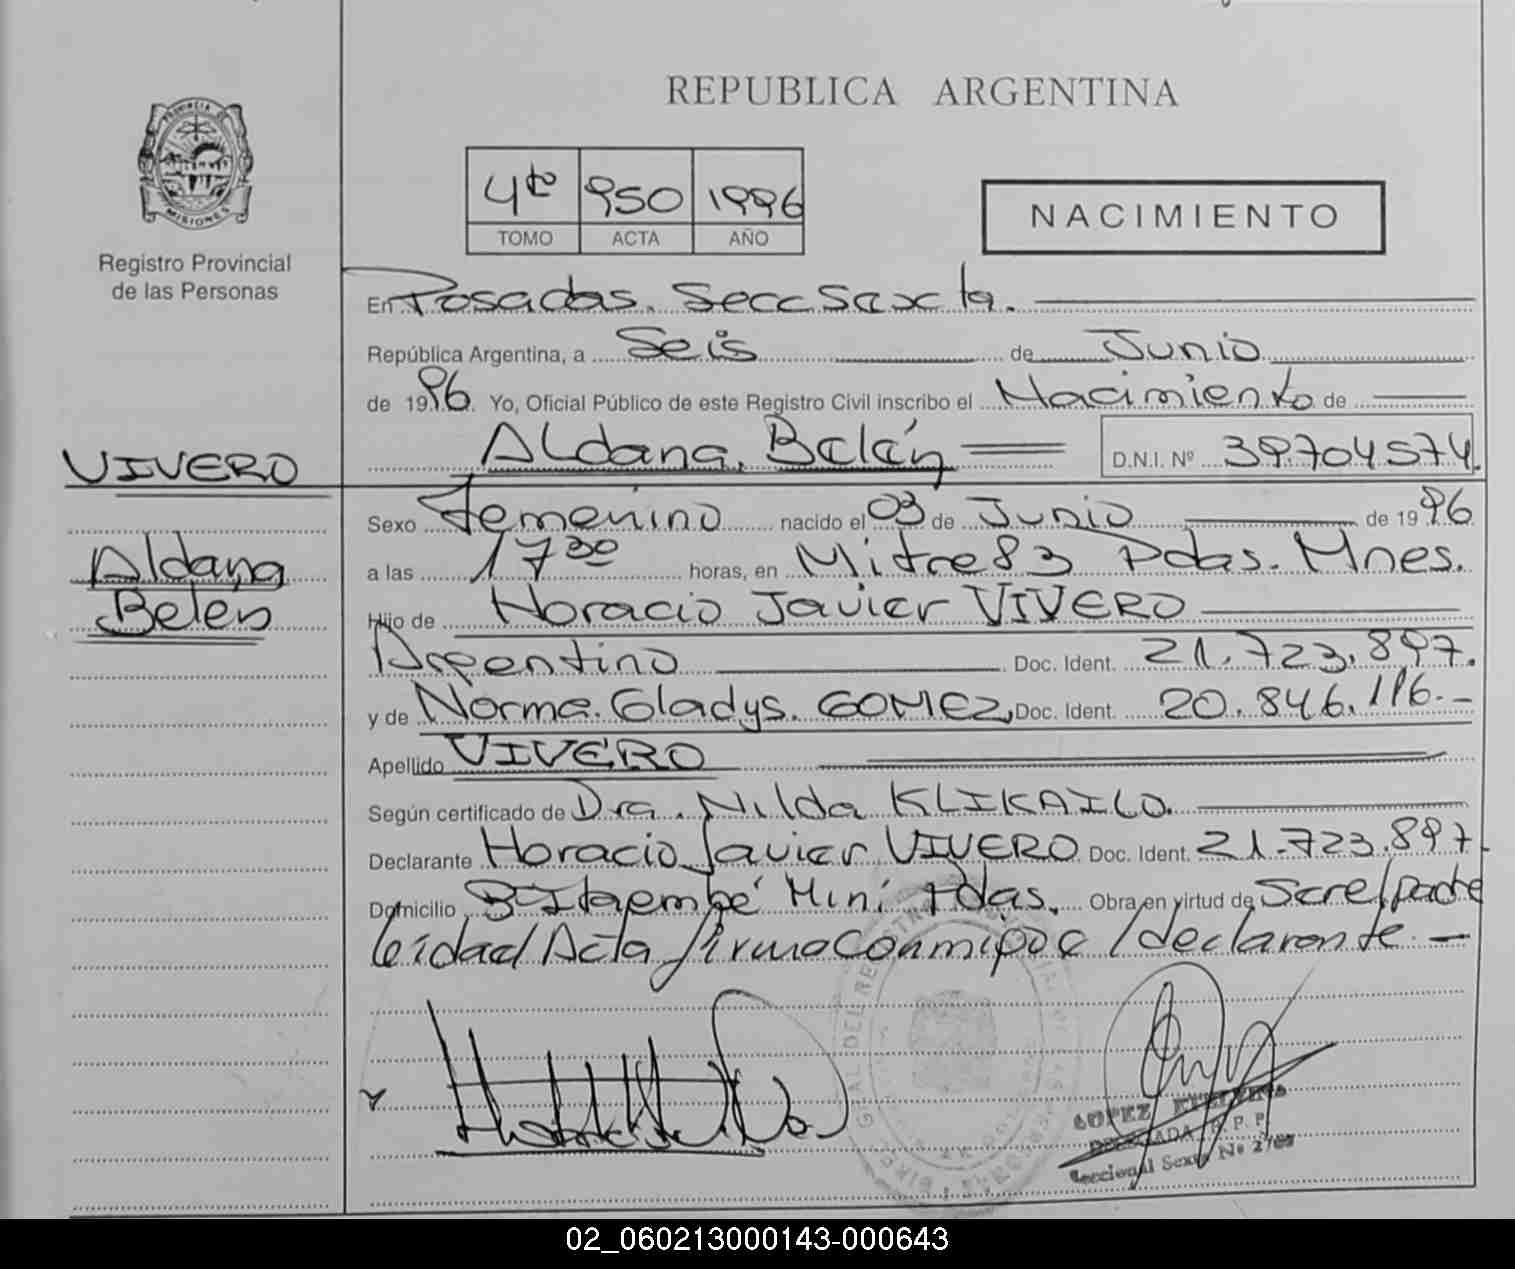 REPUBLICA ARGENTINA
PROVINCIA DE
MISIONES
Registro Provincial
de las Personas
4to 950 1996
TOMO ACTA AÑO
NACIMIENTO
En Posadas. Secc Sexta.
República Argentina, a Seis de Junio
de 1996. Yo, Oficial Público de este Registro Civil inscribo el Nacimiento de
Aldana Belén D.N.I. Nº 39.704574.
VIVERO
Aldana
Belen
Sexo Femenino nacido el 03 de Junio de 1996
a las 17 30 horas, en Mitre 83 Pdas. Mnes.
Hijo de Horacio Javier VIVERO
Argentino Doc. Ident. 21.723.897.
y de Norma Gladys GOMEZ, Doc. Ident. 20.846.116.-
Apellido VIVERO
Según certificado de Dra. Nilda KLIKAILO
Declarante Horacio Javier VIVERO Doc. Ident. 21.723.897.
Domicilio Bº Itaembé Miní Pdas. Obra en virtud de
leída el Acta firma conmigo e/declarante.-
LOPEZ
Seccional Sexta Nº
02_060213000143-000643